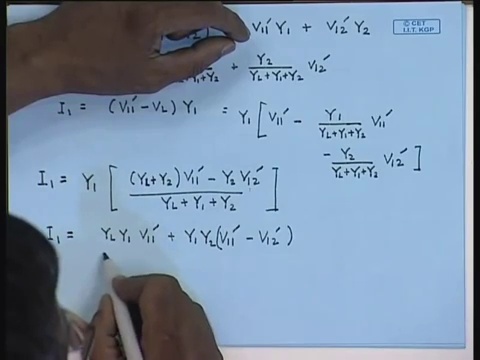 V11′ Y1 + V12′ Y2
© CET
I.I.T. KGP
YL+Y1+Y2 + Y2/(YL+Y1+Y2) V12′
I1 = (V11′ – VL) Y1 = Y1 [ V11′ – Y1/(YL+Y1+Y2) V11′
– Y2/(YL+Y1+Y2) V12′ ]
I1 = Y1 [ ((YL+Y2) V11′ – Y2 V12′)/(YL + Y1 + Y2) ]
I1 = YL Y1 V11′ + Y1 Y2 (V11′ – V12′)